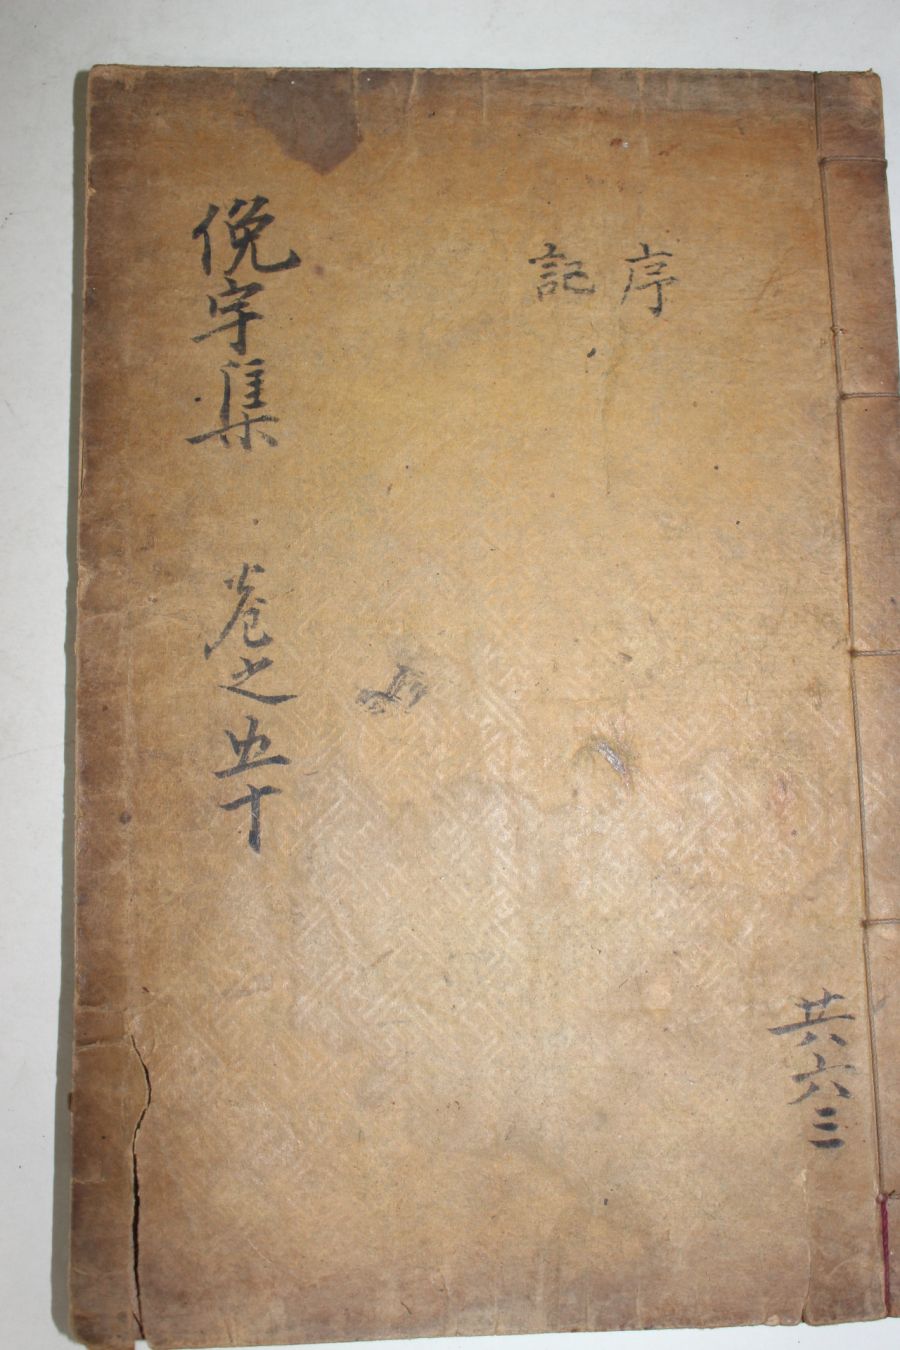 共六三
序
記
俛宇集 卷之五十